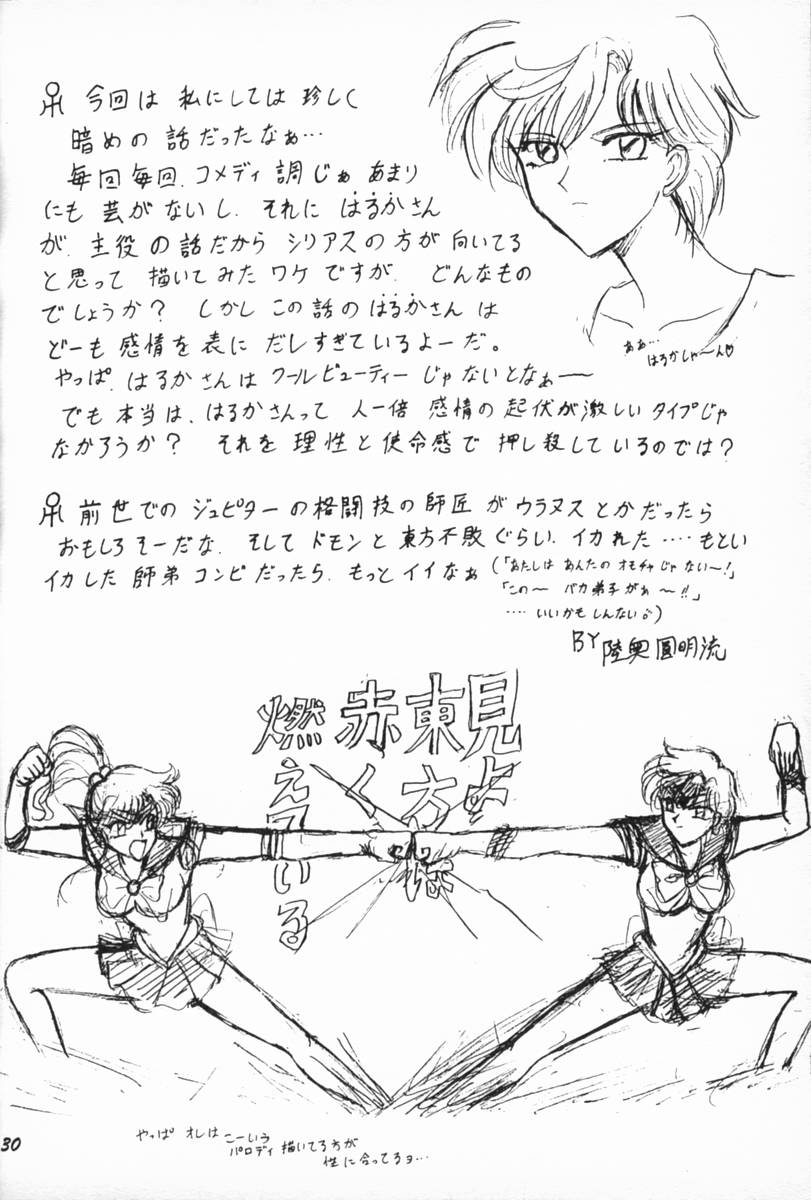 今回は 私にしては 珍しく
暗めの 話だったなぁ…
毎回毎回、コメディ調じゃぁ あまり
にも 芸がないし、それに はるかさん
が、主役の話だから シリアスの方が向いてる
と思って 描いてみた ワケ ですが、どんなもの
でしょうか？ しかし この話の はるかさん は
どーも 感情を表に だしすぎているよーだ。
やっぱ、はるかさんは クールビューティー じゃないとなぁ──
でも 本当は、はるかさんって 人一倍 感情の 起伏が激しい タイプじゃ
なかろうか？ それを 理性と 使命感で 押し殺しているのでは？
ああ…
はるかしゃ～ん♡
前世での ジュピターの格闘技の師匠 が ウラヌス とかだったら
おもしろそーだな、そして ドモンと 東方不敗ぐらい、イカれた …… もとい
イカした 師弟 コンビ だったら、もっと イイなぁ (「あたしは あんたの オモチャじゃ ない～！」
「この～ バカ弟子がぁ ～!!」
…… いいかも しんない)
BY 陸奥圓明流
見よ
東方は
赤く
燃えている
やっぱ オレは こーいう
パロディ 描いてる方が
性に合ってるョ…
30